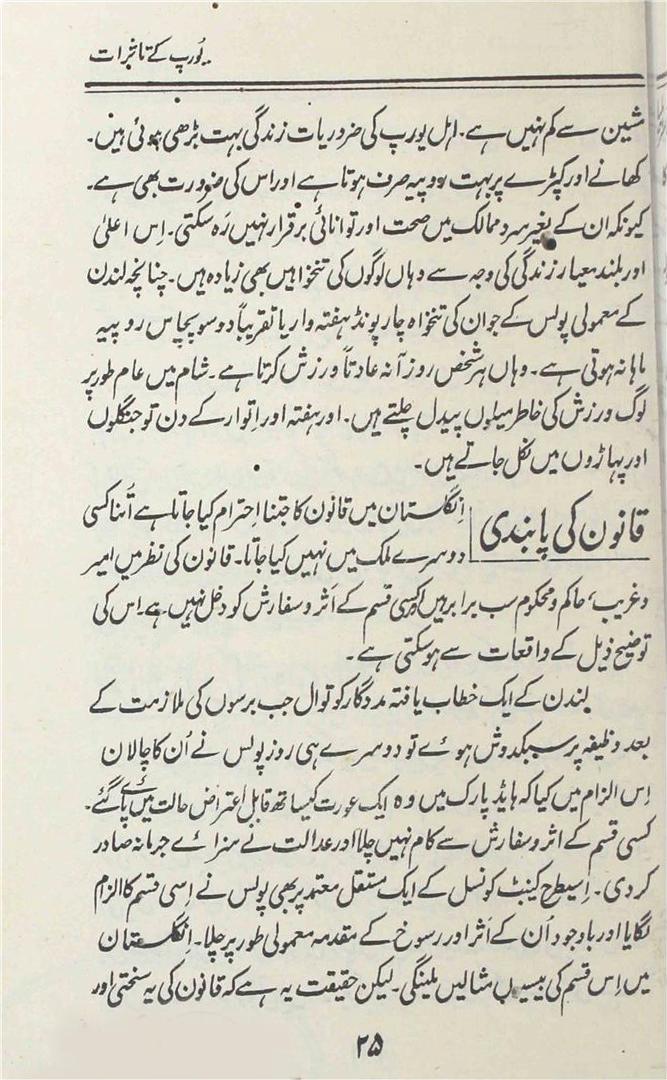 یورپ کے تاثرات
شین سے کم نہیں ہے۔ اہل یورپ کی ضروریات زندگی بہت بڑھی ہوئی ہیں۔
کھانے اور کپڑے پر بہت روپیہ صرف ہوتا ہے اور اس کی ضرورت بھی ہے۔
کیونکہ ان کے بغیر سرد ممالک میں صحت اور توانائی برقرار نہیں رَہ سکتی۔ اِس اعلیٰ
اور بلند معیار زندگی کی وجہ سے وہاں لوگوں کی تنخواہیں بھی زیادہ ہیں۔ چنانچہ لندن
کے معمولی پولس کے جوان کی تنخواہ چار پونڈ ہفتہ وار یا تقریباً دو سو پچاس روپیہ
ماہانہ ہوتی ہے۔ وہاں ہر شخص روزآنہ عادتاً ورزش کرتا ہے۔ شام میں عام طور پر
لوگ ورزش کی خاطر میلوں پیدل چلتے ہیں۔ اور ہفتہ اور اِتوار کے دن تو جنگلوں
اور پہاڑوں میں نکل جاتے ہیں۔
قانون کی پابندی
اِنگلستان میں قانون کا جتنا اِحترام کیا جاتا ہے اُتنا کسی
دوسرے ملک میں نہیں کیا جاتا۔ قانون کی نظر میں امیر
و غریب، حاکم و محکوم سب برابر ہیں کسی قسم کے اَثر و سفارش کو دخل نہیں ہے۔ اِس کی
توضیح ذیل کے واقعات سے ہو سکتی ہے۔
لندن کے ایک خطاب یافتہ مددگار کوتوال جب برسوں کی ملازمت کے
بعد وظیفہ پر سبکدوش ہوئے تو دوسرے ہی روز پولس نے اُن کا چالان
اِس الزام میں کیا کہ ہایڈ پارک میں وہ ایک عورت کیساتھ قابلِ اعتراض حالت میں پائے گئے۔
کسی قسم کے اثر و سفارش سے کام نہیں چلا اور عدالت نے سزائے جرمانہ صادر
کر دی۔ اِسیطرح کینٹ کونسل کے ایک مستقل معتمد پر بھی پولس نے اِسی قسم کا الزام
لگایا اور باوجود اُن کے اَثر اور رسوخ کے مقدمہ معمولی طور پر چلا۔ اِنگلستان
میں اِس قسم کی بیسیوں مثالیں ملینگی۔ لیکن حقیقت یہ ہے کہ قانون کی یہ سختی اور
۲۵